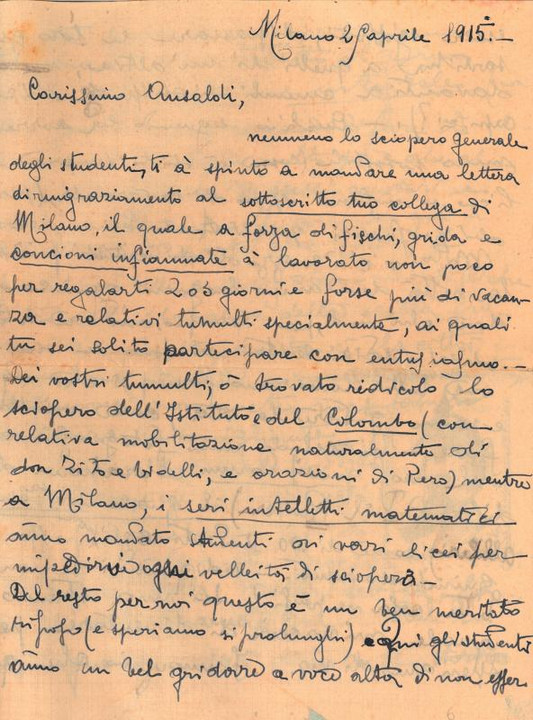 Milano 2 aprile 1915.—
Carissimo Ansaldi,
nemmeno lo sciopero generale
degli studenti, ti à spinto a mandare una lettera
di ringraziamento al sottoscritto tuo collega di
Milano, il quale a forza di fischi, grida e
concioni infiammate à lavorato non poco
per regalarti 2 o 3 giorni e forse più di vacan-
za e relativi tumulti specialmente, ai quali
tu sei solito partecipare con entusiasmo.—
Dei vostri tumulti, ò trovato ridicolo lo
sciopero dell'Istituto e del Colombo (con
relativa mobilitazione naturalmente di
don Zito e bidelli, e orazioni di Pero) mentre
a Milano, i seri intelletti matematici
ànno mandato studenti ai vari licei per
impedirvi ogni velleità di sciopero—
Del resto per noi questo è un ben meritato
riposo (e speriamo si prolunghi) e qui gli studenti
ànno un bel gridare a voce alta di non esser